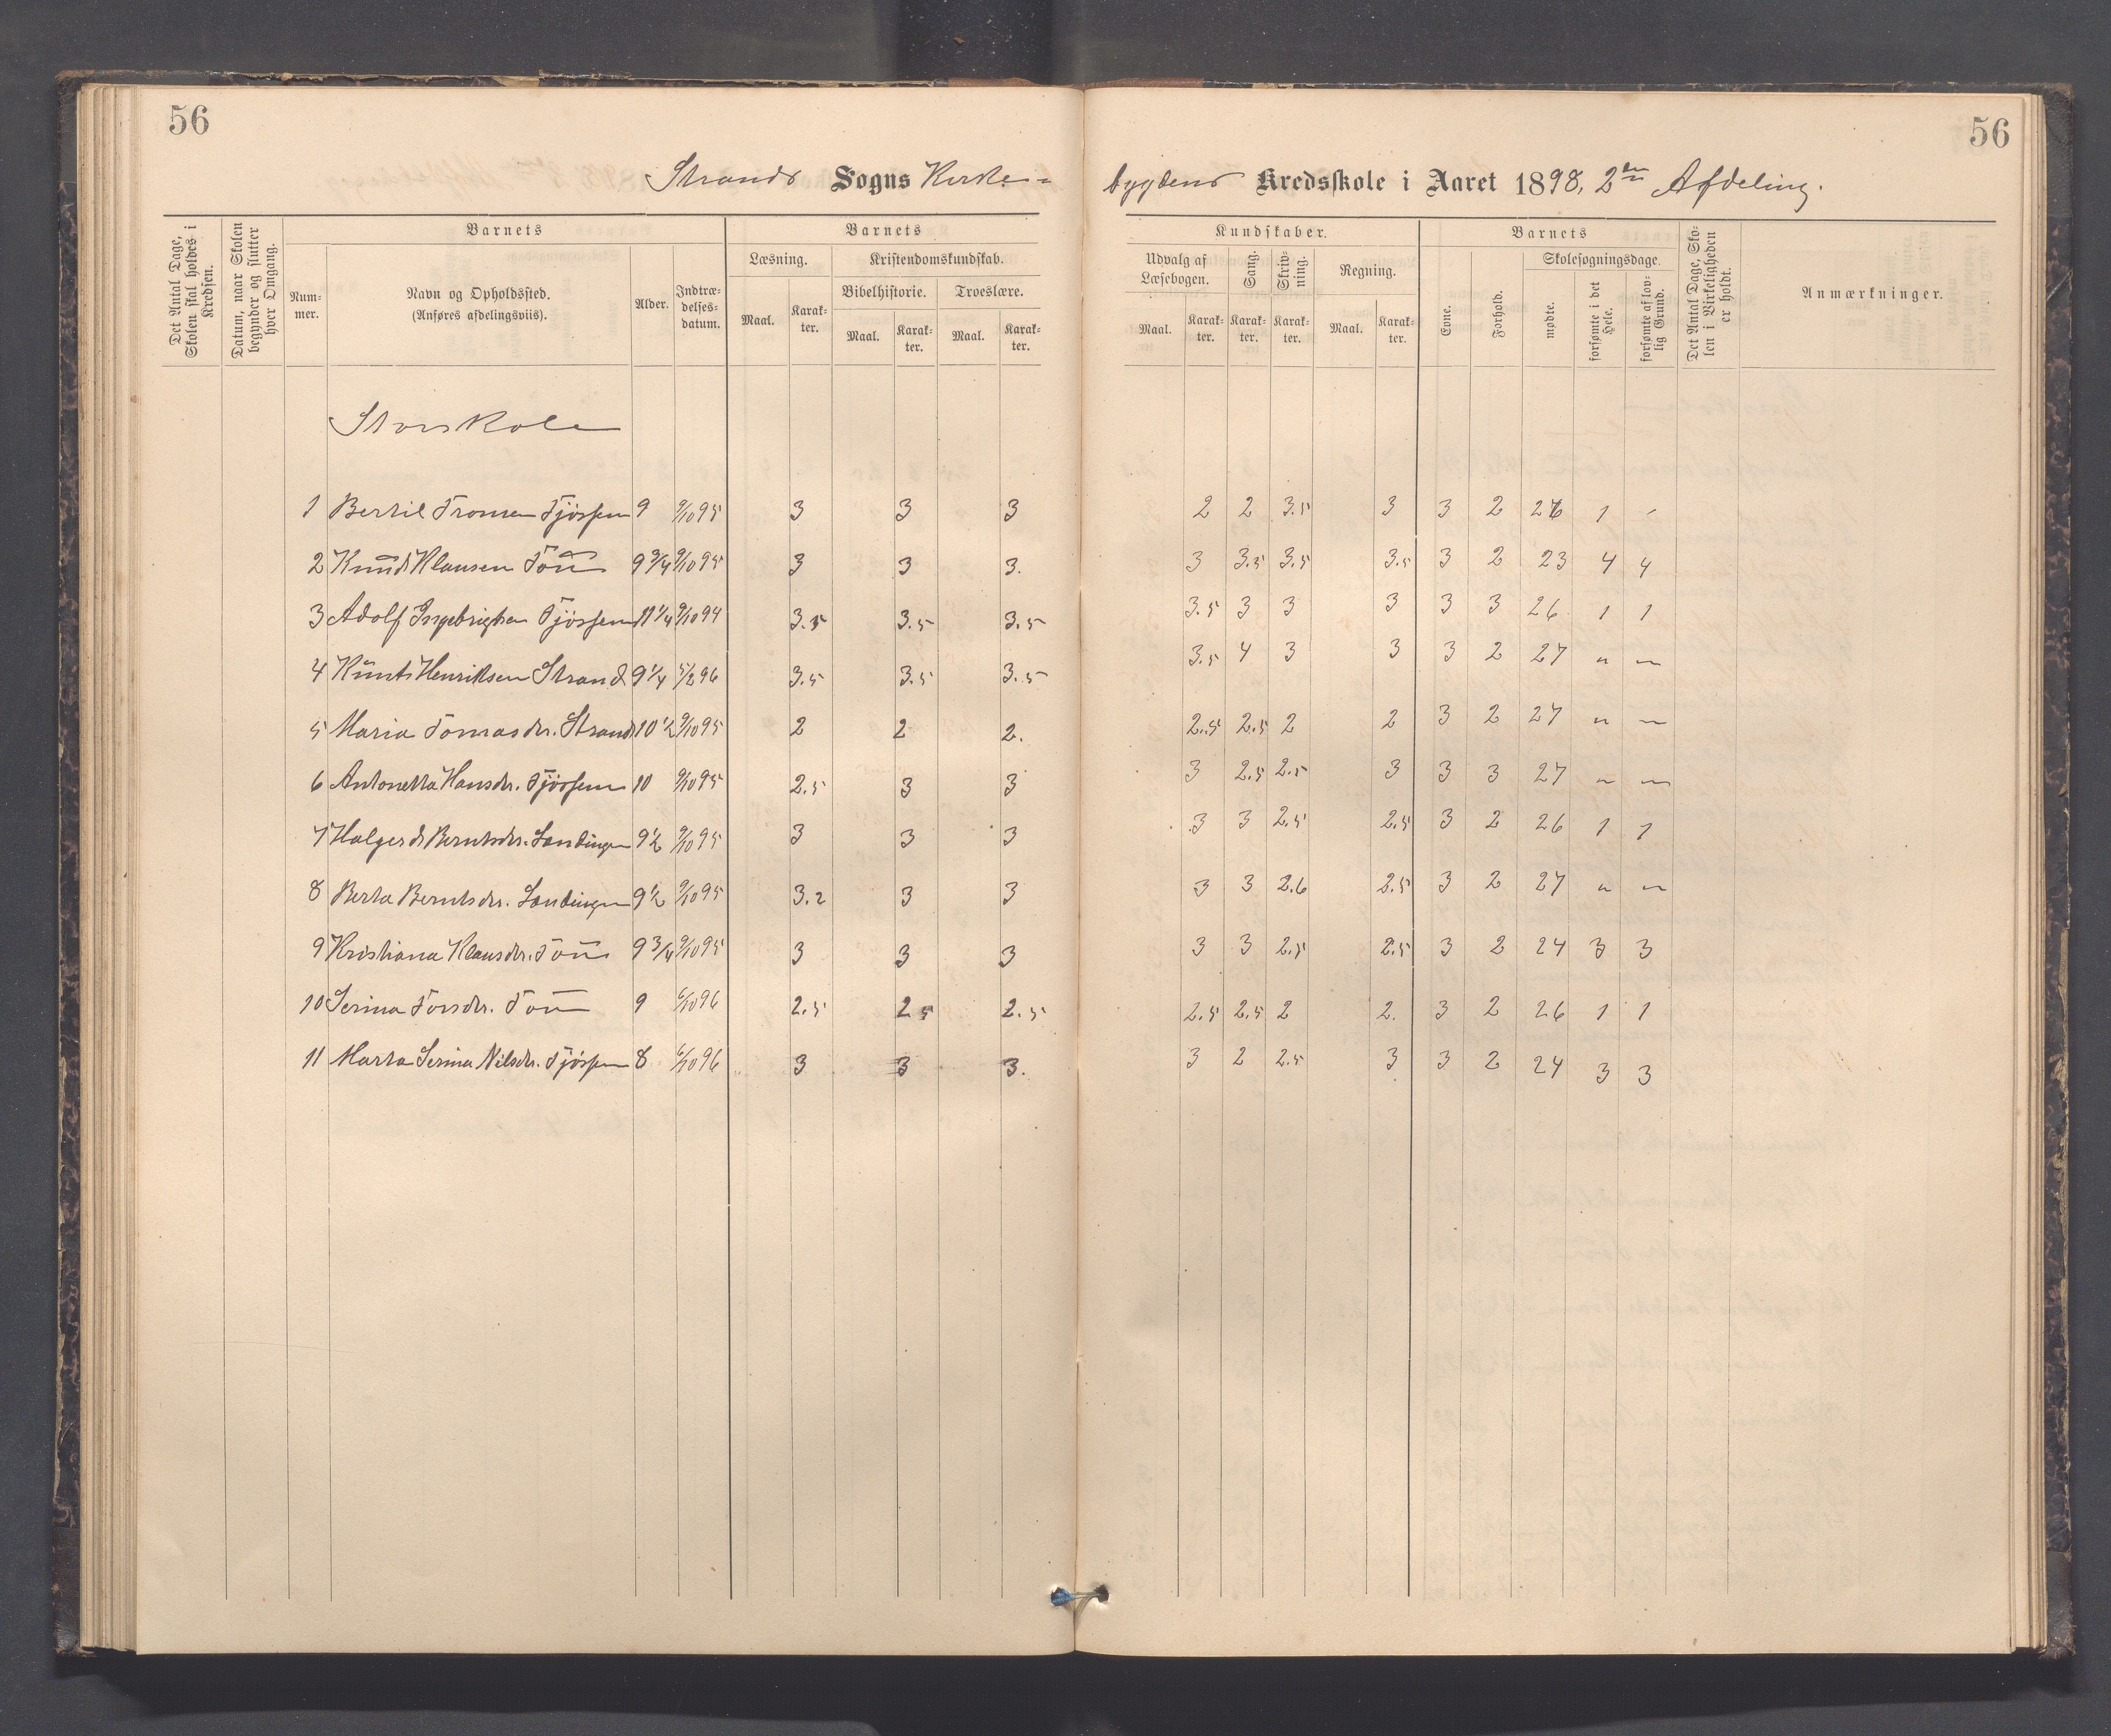 56
56
Strands Sogns Kirke-
bygdens Kredsskole i Aaret 1898, 2den Afdeling.
Det Antal Dage, Skolen skal holdes i Kredsen.
Datum, naar Skolen begynder og slutter hver Omgang.
Barnets
Nummer.
Navn og Opholdssted.
(Anføres afdelingsviis).
Alder.
Indtrædelsesdatum.
Barnets
Læsning.
Maal.
Karakter.
Kristendomskundskab.
Bibelhistorie.
Maal.
Karakter.
Troeslære.
Maal.
Karakter.
Kundskaber.
Udvalg af Læsebogen.
Maal.
Karakter.
Sang.
Karakter.
Skrivning.
Karakter.
Regning.
Maal.
Karakter.
Barnets
Evne.
Forhold.
Skolesøgningsdage.
mødte.
forsømte i det Hele.
forsømte af lovlig Grund.
Det Antal Dage, Skolen i Virkeligheden er holdt.
Anmærkninger.
Storskole
1 Bertil Tronsen Tjössem 9 9/10 95 3 3 3 2 2 3.5 3 3 2 26 1 -
2 Knud Klausen Tou 9 3/4 9/10 95 3 3 3. 3 3.5 3.5 3.5 3 2 23 4 4
3 Adolf Ingebrigtsen Tjössem 11 1/4 9/10 94 3.5 3.5 3.5 3.5 3 3 3 3 3 26 1 1
4 Knut Henriksen Strand 9 1/4 5/2 96 3.5 3.5 3.5 3.5 4 3 3 3 2 27 " "
5 Maria Tomasdtr. Strand 10 1/2 9/10 95 2 2 2. 2.5 2.5 2 2 3 2 27 " "
6 Antonetta Hansdtr. Tjössem 10 9/10 95 2.5 3 3 3 2.5 2.5 3 3 3 27 " "
7 Halgerd Berntsdtr. Landingen 9 1/2 9/10 95 3 3 3 3 3 2.5 2.5 3 2 26 1 1
8 Berta Berntsdtr. Landingen 9 1/2 9/10 95 3.2 3 3 3 3 2.6 2.5 3 2 27 " "
9 Kristiana Klausdtr. Tou 9 3/4 9/10 95 3 3 3 3 3 2.5 2.5 3 2 24 3 3
10 Serina Torsdtr. Tou 9 6/10 96 2.5 2 5 2.5 2.5 2.5 2 2. 3 2 26 1 1
11 Marta Serina Nilsdtr. Tjössem 8 6/10 96 3 3 3. 3 2 2.5 3 3 2 24 3 3